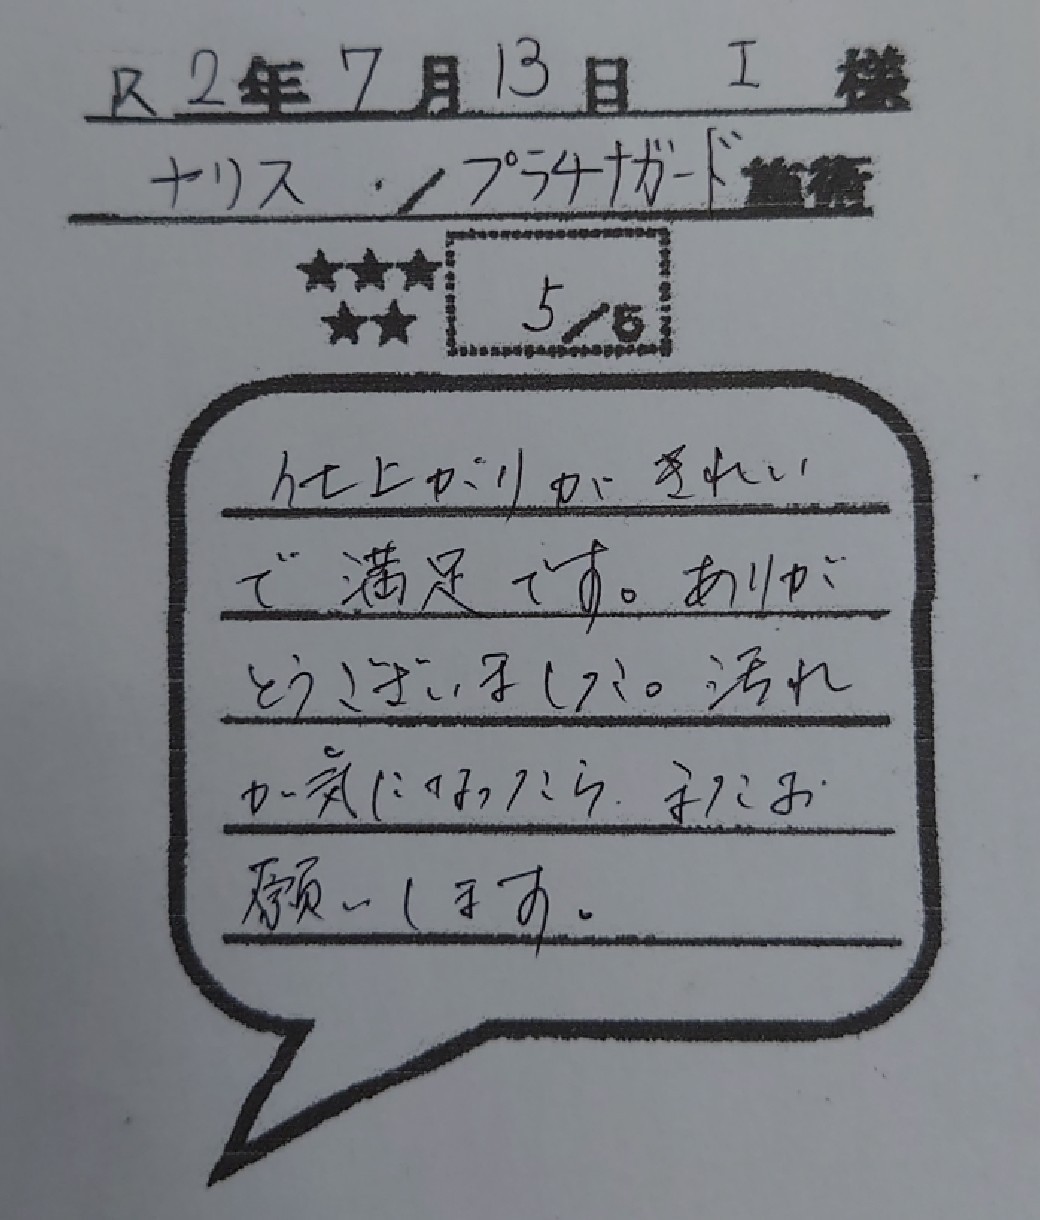 R2年7月13日 I 様
ナリス ・/プラチナガード施術
★★★
★★
5/5
仕上がりがきれい
で満足です。ありが
とうございました。汚れ
が気になったら、またお
願いします。